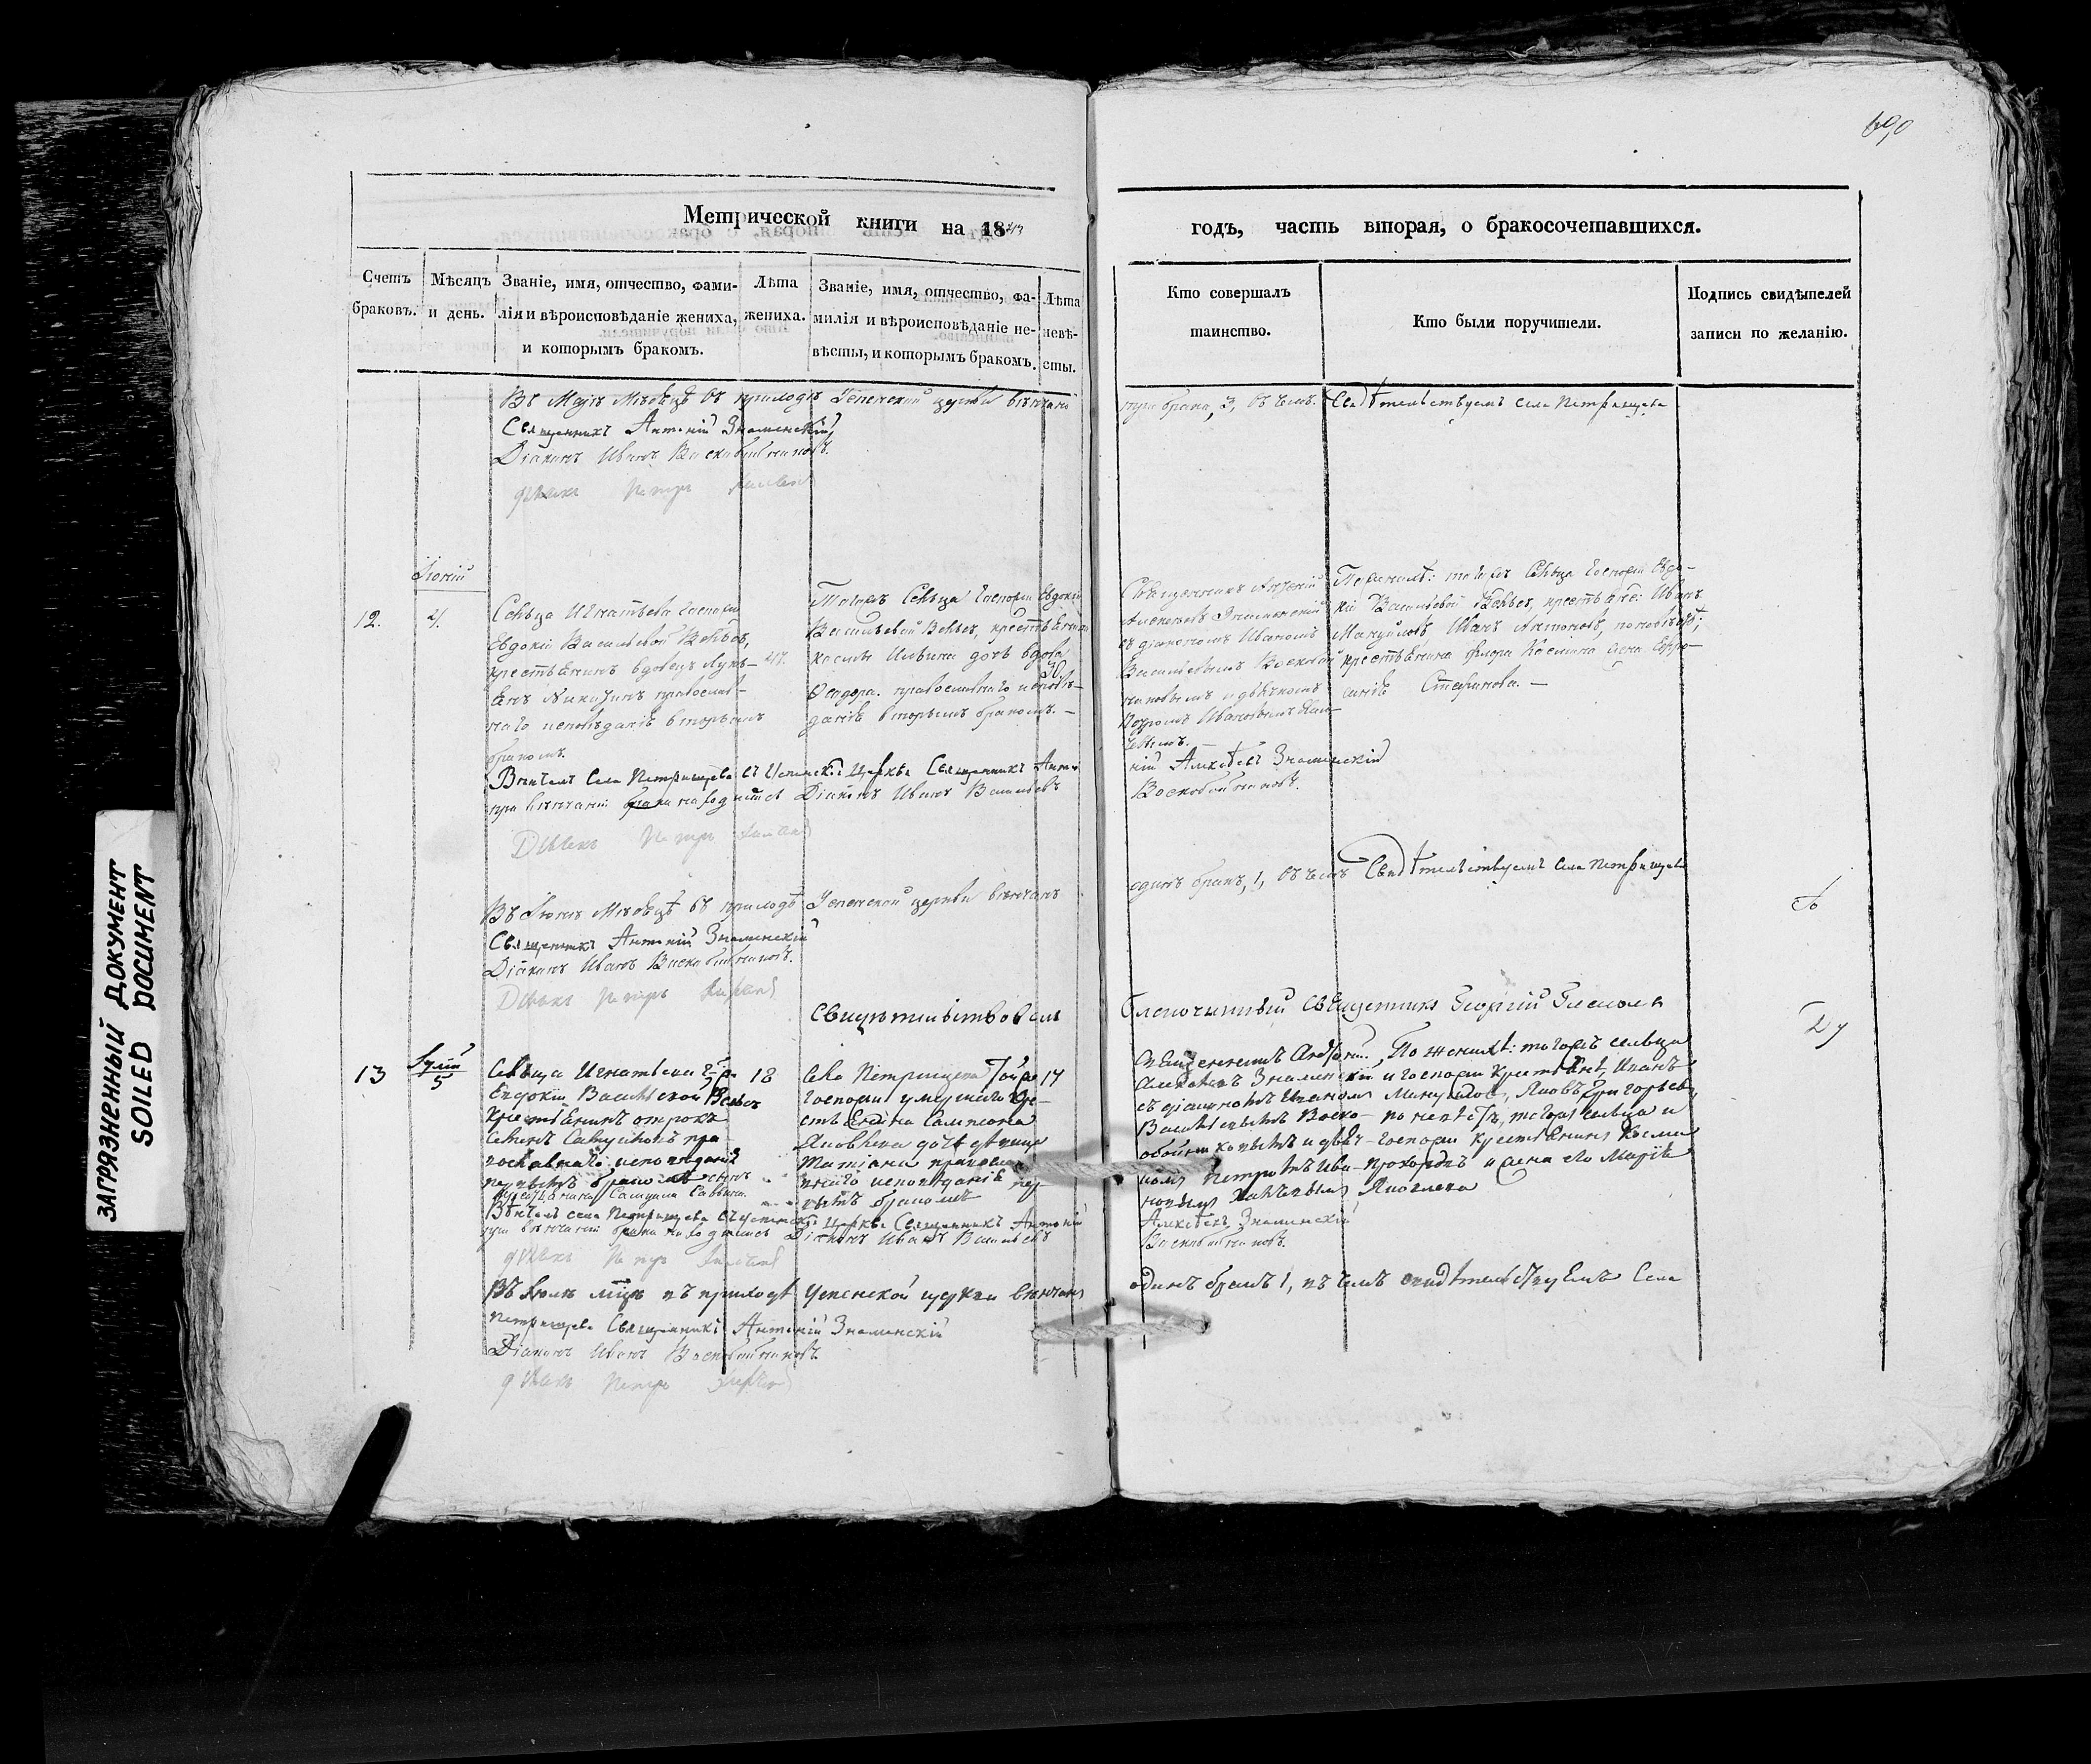 690
Метрической книги на 1843
годъ, часть вторая, о бракосочетавшихся.
Счетъ браковъ.
Мѣсяцъ и день.
Званіе, имя, отчество, фами-
лія и вѣроисповѣданіе жениха,
и которымъ бракомъ.
Лѣта
жениха.
Званіе, имя, отчество, фа-
милія и вѣроисповѣданіе не-
вѣсты, и которымъ бракомъ.
Лѣта
невѣ-
сты.
Кто совершалъ
таинство.
Кто были поручители.
Подпись свидѣтелей
записи по желанію.
Въ Маіѣ Мѣсяцѣ въ приходѣ Успенской церкви вѣнчано
три брака, 3, въ чемъ Свидѣтельствуемъ села Петрищева
Священникъ Антоній Знаменскій
Діаконъ Иванъ Воскобойниковъ.
Дьячекъ Петръ
Іюній
12.
4.
Сельца Игнатьева Госпожи
Евдокіи Васильевой
крестьянинъ вдовецъ Лукь-
янъ православ-
наго исповѣданія вторымъ
бракомъ.
47.
Тогожъ Сельца Госпожи Евдокіи
Васильевой крестьянина
Космы Ильина дочь вдова
Ѳеодора. православнаго исповѣ-
данія вторымъ бракомъ. —
30.
Священникъ Антоній
Алексѣевъ Знаменскій
съ діакономъ Иваномъ
Васильевымъ Воскобой-
никовымъ и дьячкомъ
Петромъ Ивановымъ
По женихѣ: тогожъ Сельца Госпожи Евдо-
кіи Васильевой крестьяне: Иванъ
Мануйловъ, Иванъ Антоновъ, по невѣстѣ;
крестьянина Флора Космина жена Евфро-
синія Стефанова. —
Вѣнчалъ Села Петрищева Успенской Церкви Священникъ Анто-
ній Алексѣевъ Знаменскій
при вѣнчаніи брака находился Діаконъ Иванъ Васильевъ
Воскобойниковъ.
Дьячекъ Петръ
Въ Іюнѣ Мѣсяцѣ въ приходѣ Успенской церкви вѣнчанъ
одинъ бракъ, 1, въ чемъ Свидѣтельствуемъ села Петрищева
Священникъ Антоній Знаменскій
Діаконъ Иванъ Воскобойниковъ.
Дьячекъ Петръ
Свидѣтельствовалъ
Благочинный Священникъ Георгій
13
Іулій
5
Сельца Игнатьева Г-жи
Евдокіи Васильевой
Крестьянинъ отрокъ
Семенъ Самуиловъ пра-
вославнаго исповѣданія
первымъ бракомъ сынъ
крестьянина Самуила Саввина.
18
Села Петрищева
Госпожи умершаго кре-
стьянина Сампсона
Яковлева дочь дѣвица
Татіана православ-
наго исповѣданія пер-
вымъ бракомъ
17
Священникъ Антоній
Алексѣевъ Знаменскій
съ діакономъ Иваномъ
Васильевымъ Воско-
бойниковымъ и дьяч-
комъ Петромъ Ива-
новымъ
По женихѣ: тогожъ сельца
и Госпожи Крестьяне, Иванъ
Мануйловъ, Яковъ Григорьевъ,
по невѣстѣ, тогожъ сельца и
Госпожи крестьянинъ Косма
Прохоровъ и жена его Марія
Яковлева
Вѣнчалъ села Петрищева Успенской Церкви Священникъ Антоній
Алексѣевъ Знаменскій
при вѣнчаніи брака находился Діаконъ Иванъ Васильевъ
Воскобойниковъ.
Дьячекъ Петръ
Въ Іюлѣ мцѣ въ приходѣ Успенской церкви вѣнчанъ
одинъ бракъ 1, въ чемъ свидѣтельствуемъ Села
Петрищева Священникъ Антоній Знаменскій
Діаконъ Иванъ Воскобойниковъ.
Дьячекъ Петръ
ЗАГРЯЗНЕННЫЙ ДОКУМЕНТ
SOILED DOCUMENT